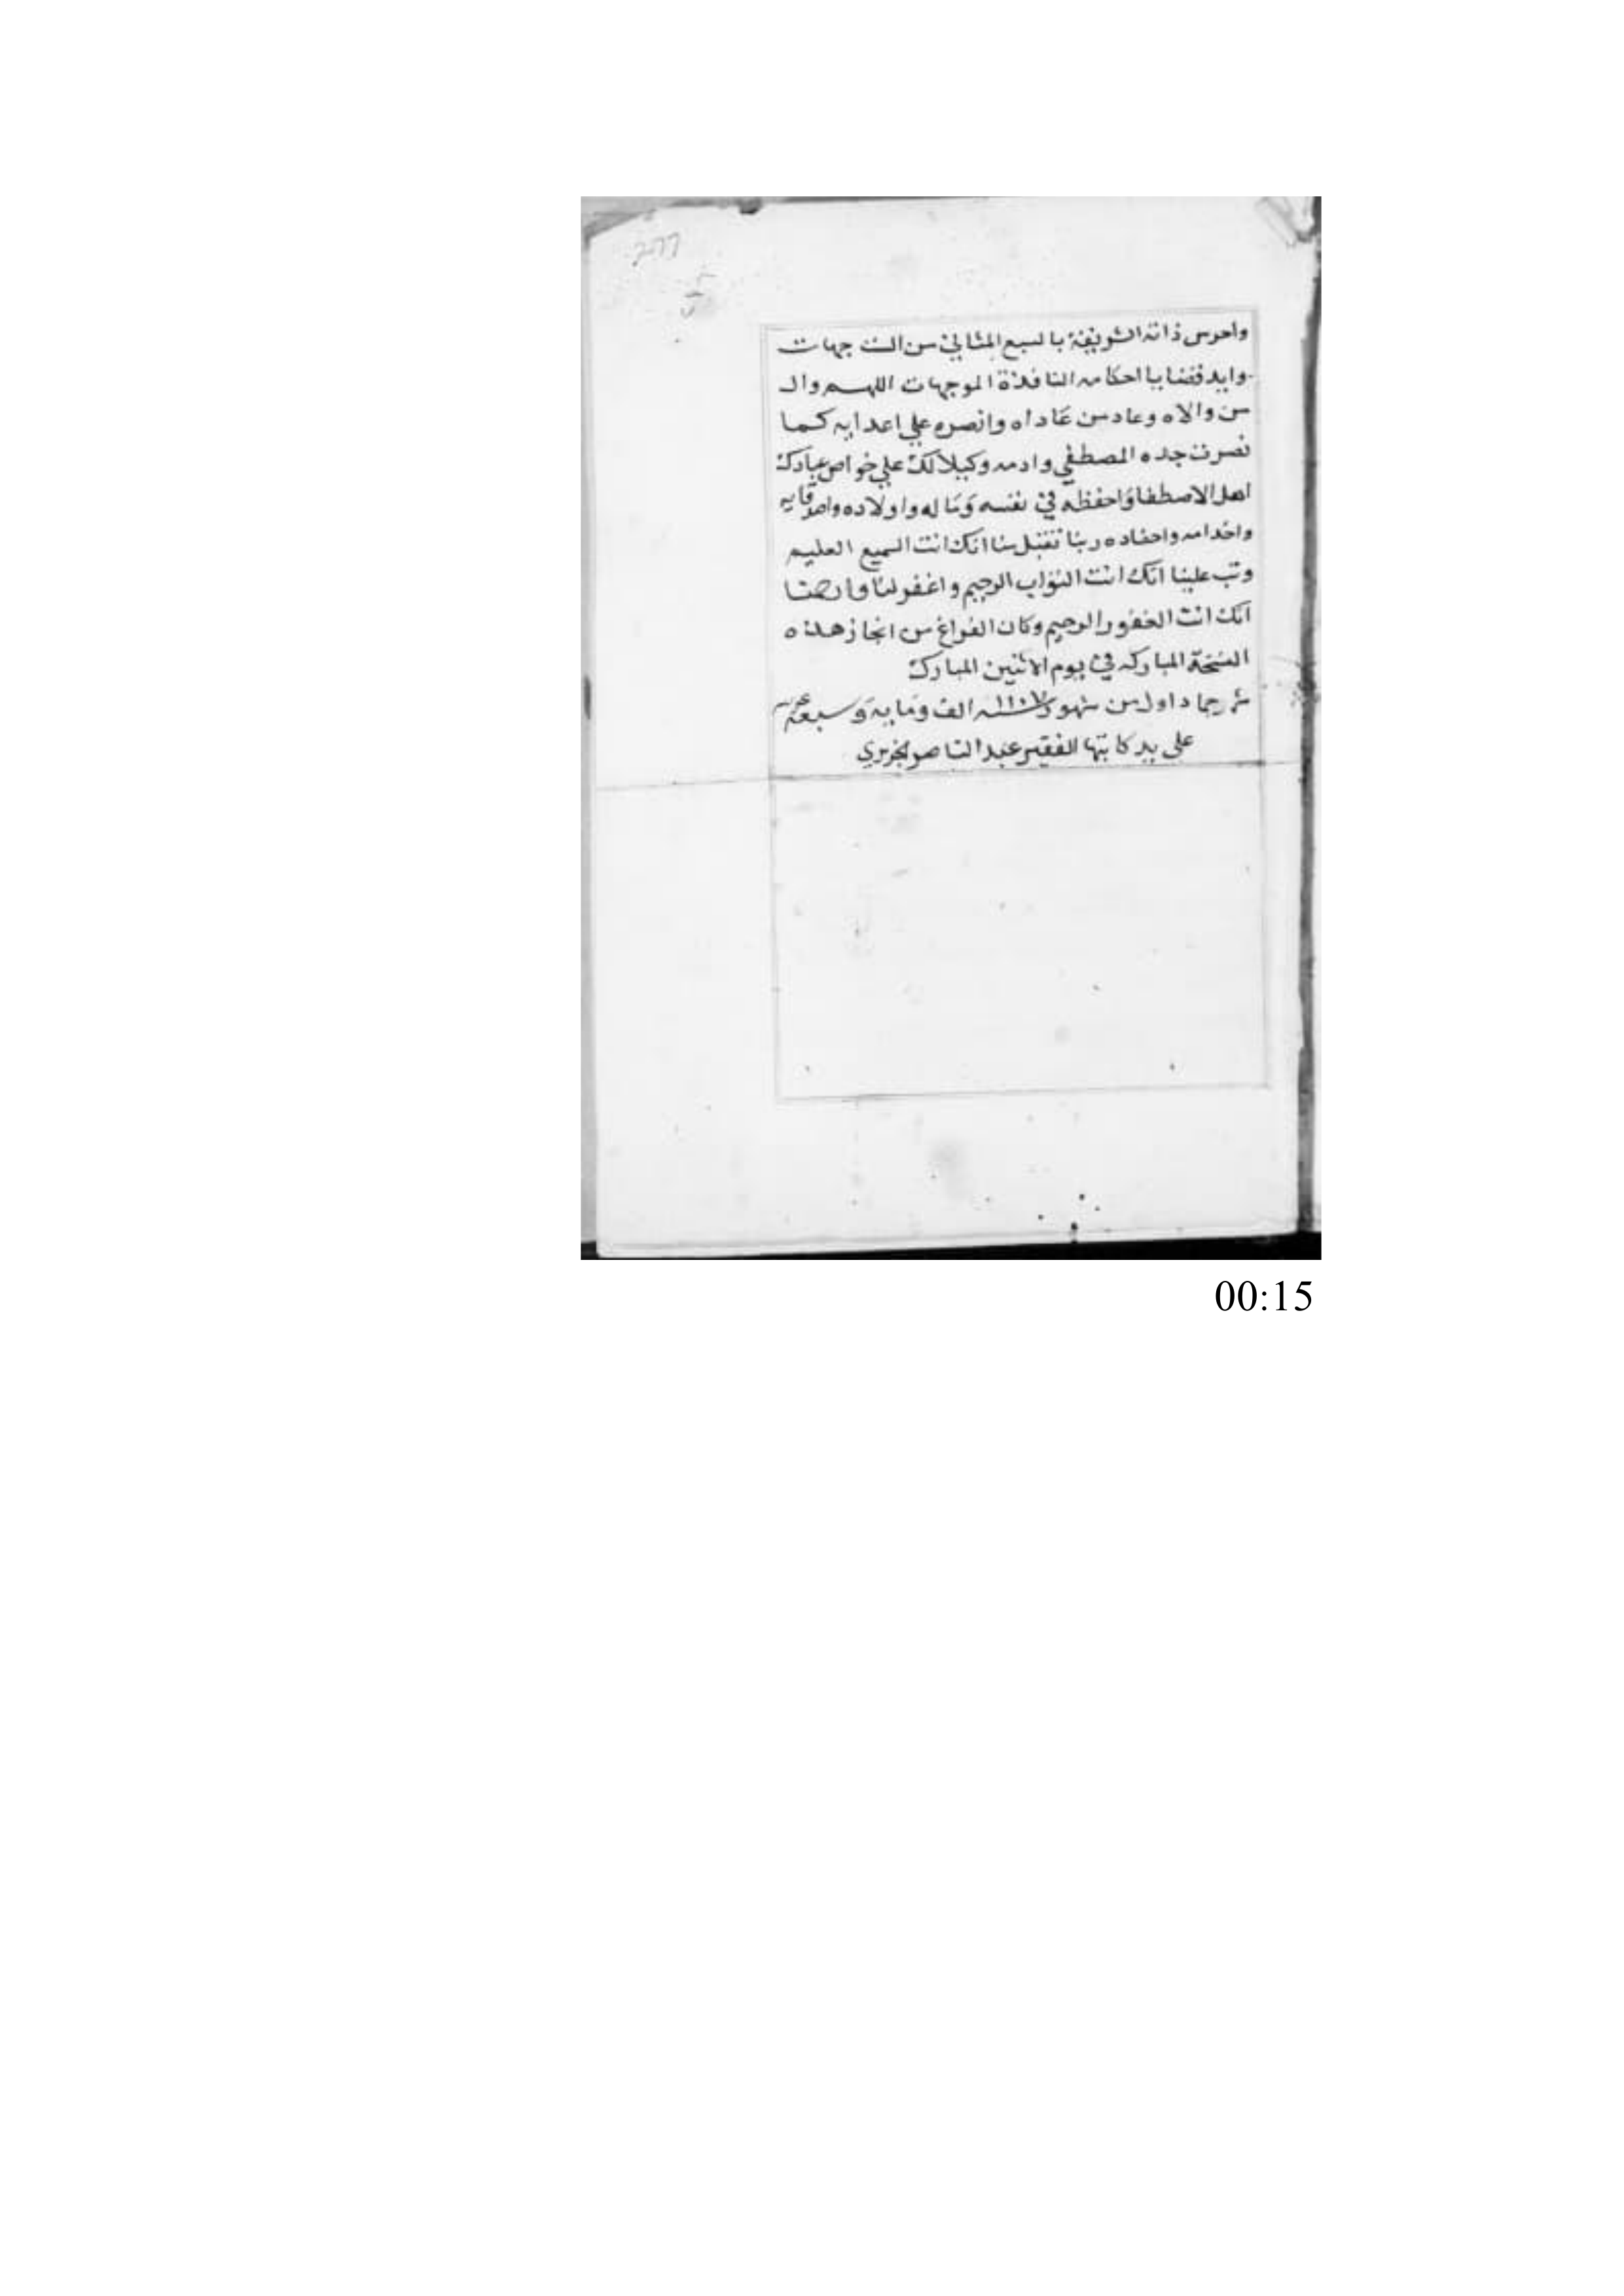 277
واحرس ذاته الشريفة بالسبع المثاني من الست جهات
وايد قضايا احكامه النافذة الموجهات اللهم وال
من والاه وعاد من عاداه وانصره علي اعدايه كما
نصرت جده المصطفي وادمه وكيلا لك علي خواص عبادك
اهل الاصطفا واحفظه في نفسه وماله واولاده واصدقايه
واخدامه واحفاده ربنا تقبل منا انك انت السميع العليم
وتب علينا انك انت التواب الرحيم واغفر لنا وارحمنا
انك انت الغفور الرحيم وكان الفراغ من انجاز هذه
النسخة المباركه في يوم الاثنين المبارك
جماد اول من شهور سنه ١١٠٧ الف ومايه وسبعة
علي يد كاتبها الفقير عبد الناصر
00:15